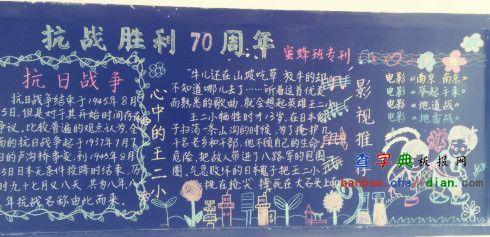 抗战胜利70周年
蜜蜂班专刊
抗日战争
抗日战争结束于1945年8月
5日,但是对于其开始时间有
争议,比较普遍的观点认为全
面的抗日战争起于1937年7月7
日的卢沟桥事变,到1945年8月
5日日本无条件投降时结束,历
时九十七月又八天 共为八年
年抗战名称由此而来。
心中的王二小
"牛儿还在山坡吃草 放牛的却
不知道哪儿去了……听着这首优美
而熟悉的歌曲,就会想起英雄王二
王二小牺牲时才13岁,在日本
于扫荡一条山沟的时候,为了掩护几
十名老乡和干部,他不顾自己的生命
危险,把敌人带进了八路军的包围
圈,气急败坏的日本鬼子把王二小
挑在枪尖 摔死在大石头上
影视推荐
电影《南京 南京》
电影《举起手来》
电影《地道战》
电影《地雷战》
查字典板报网
banbao.chazidian.com